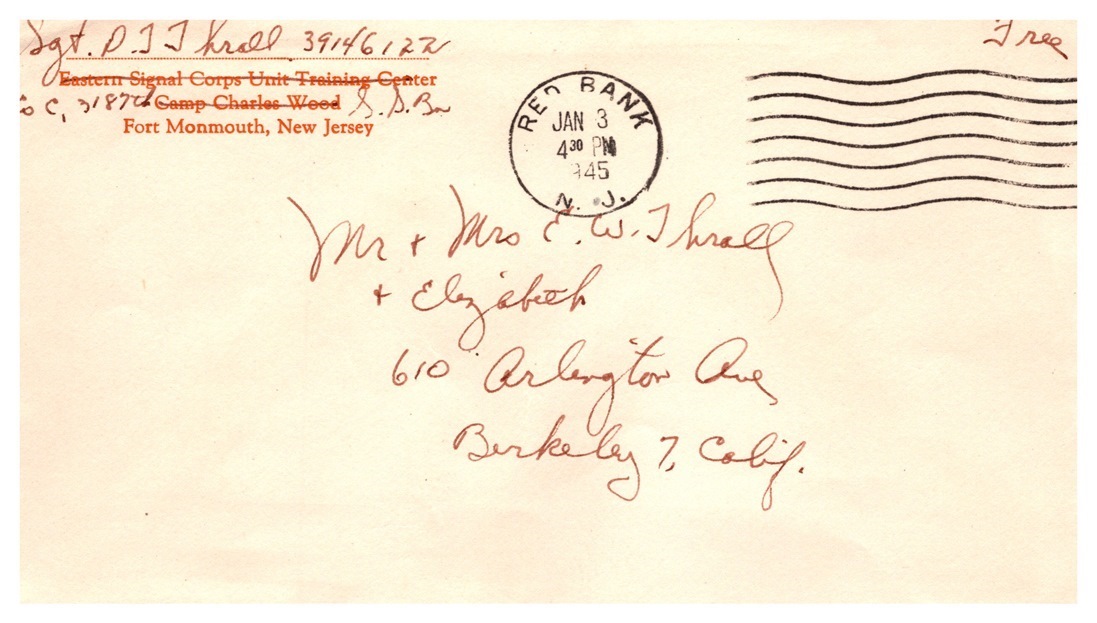 Sgt. D. T Thrall 39146122
Free
Eastern Signal Corps Unit Training Center
Co C, 3187th Camp Charles Wood S. S. Bn
Fort Monmouth, New Jersey
RED BANK
JAN 3
4 30 PM
1945
N. J.
Mr + Mrs E. W. Thrall
+ Elizabeth
610 Arlington Ave,
Berkeley 7, Calif.